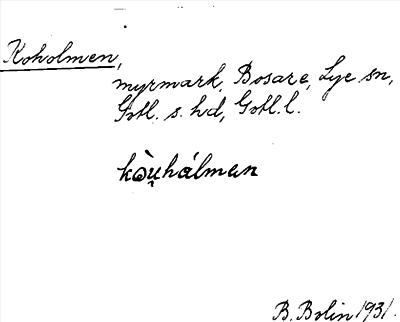 Koholmen,
myrmark, Bosare, Lye sn,
Gotl. s. hd, Gotl. l.
kòu̯hálmen
B. Bolin 1931.